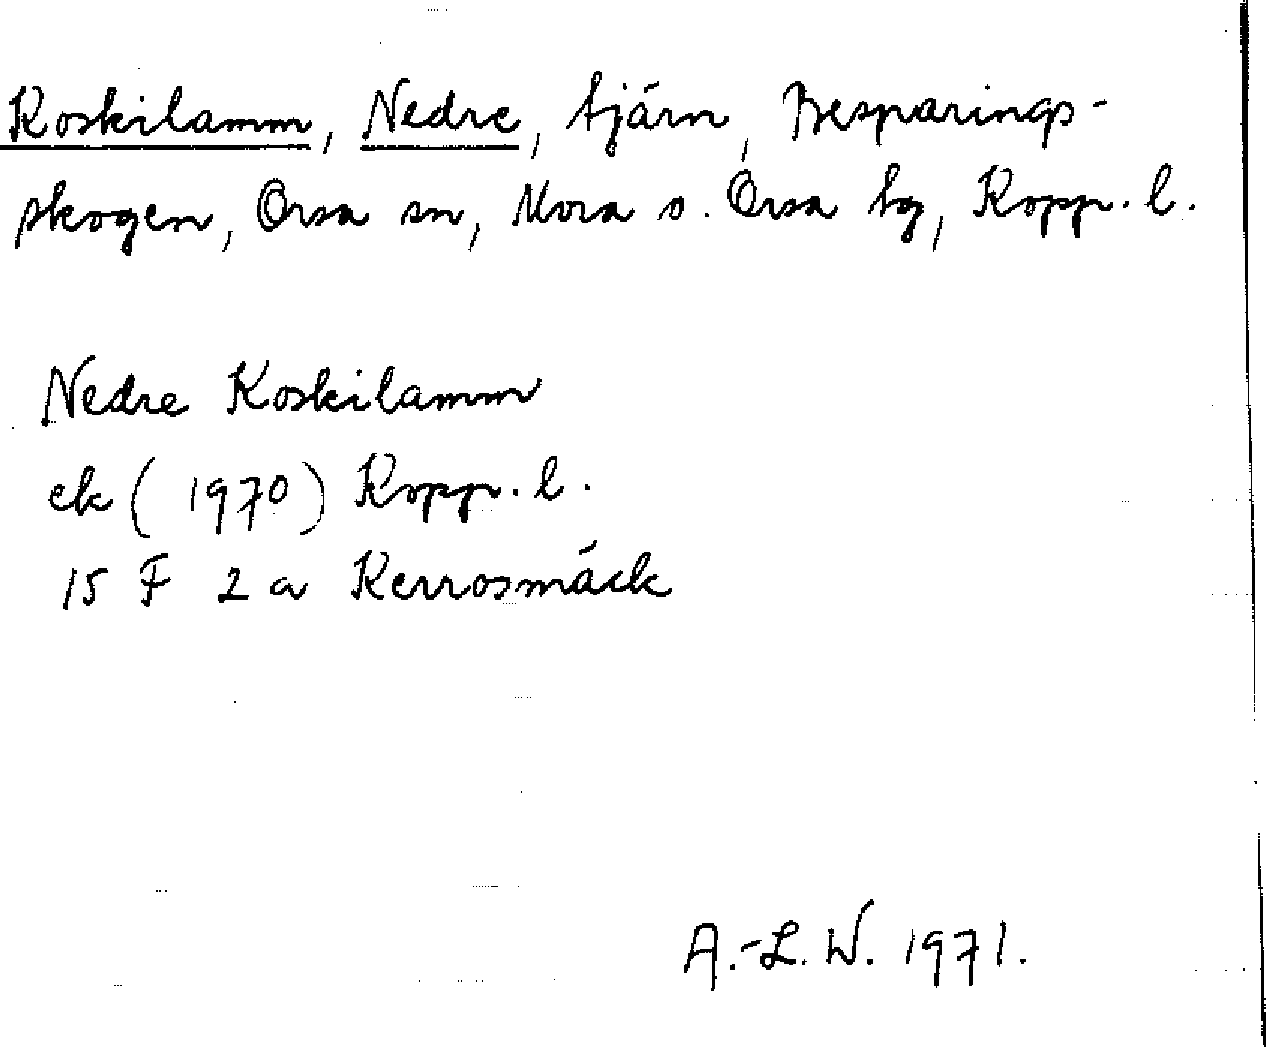 Koskilamm, Nedre, tjärn, Besparings-
skogen, Orsa sn, Mora o. Orsa tg, Kopp. l.
Nedre Koskilamm
ek (1970) Kopp. l.
15 F 2 a Kerrosmäck
A.-L. W. 1971.